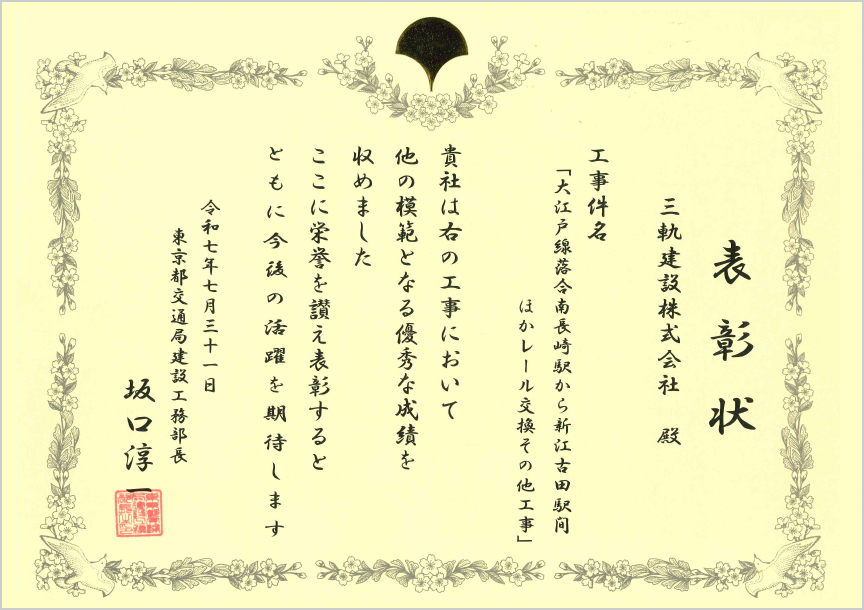 表彰状
三軌建設株式会社 殿
工事件名
「大江戸線落合南長崎駅から新江古田駅間
ほかレール交換その他工事」
貴社は右の工事において
他の模範となる優秀な成績を
収めました
ここに栄誉を讃え表彰すると
ともに今後の活躍を期待します
令和七年七月三十一日
東京都交通局建設工務部長
坂口淳一